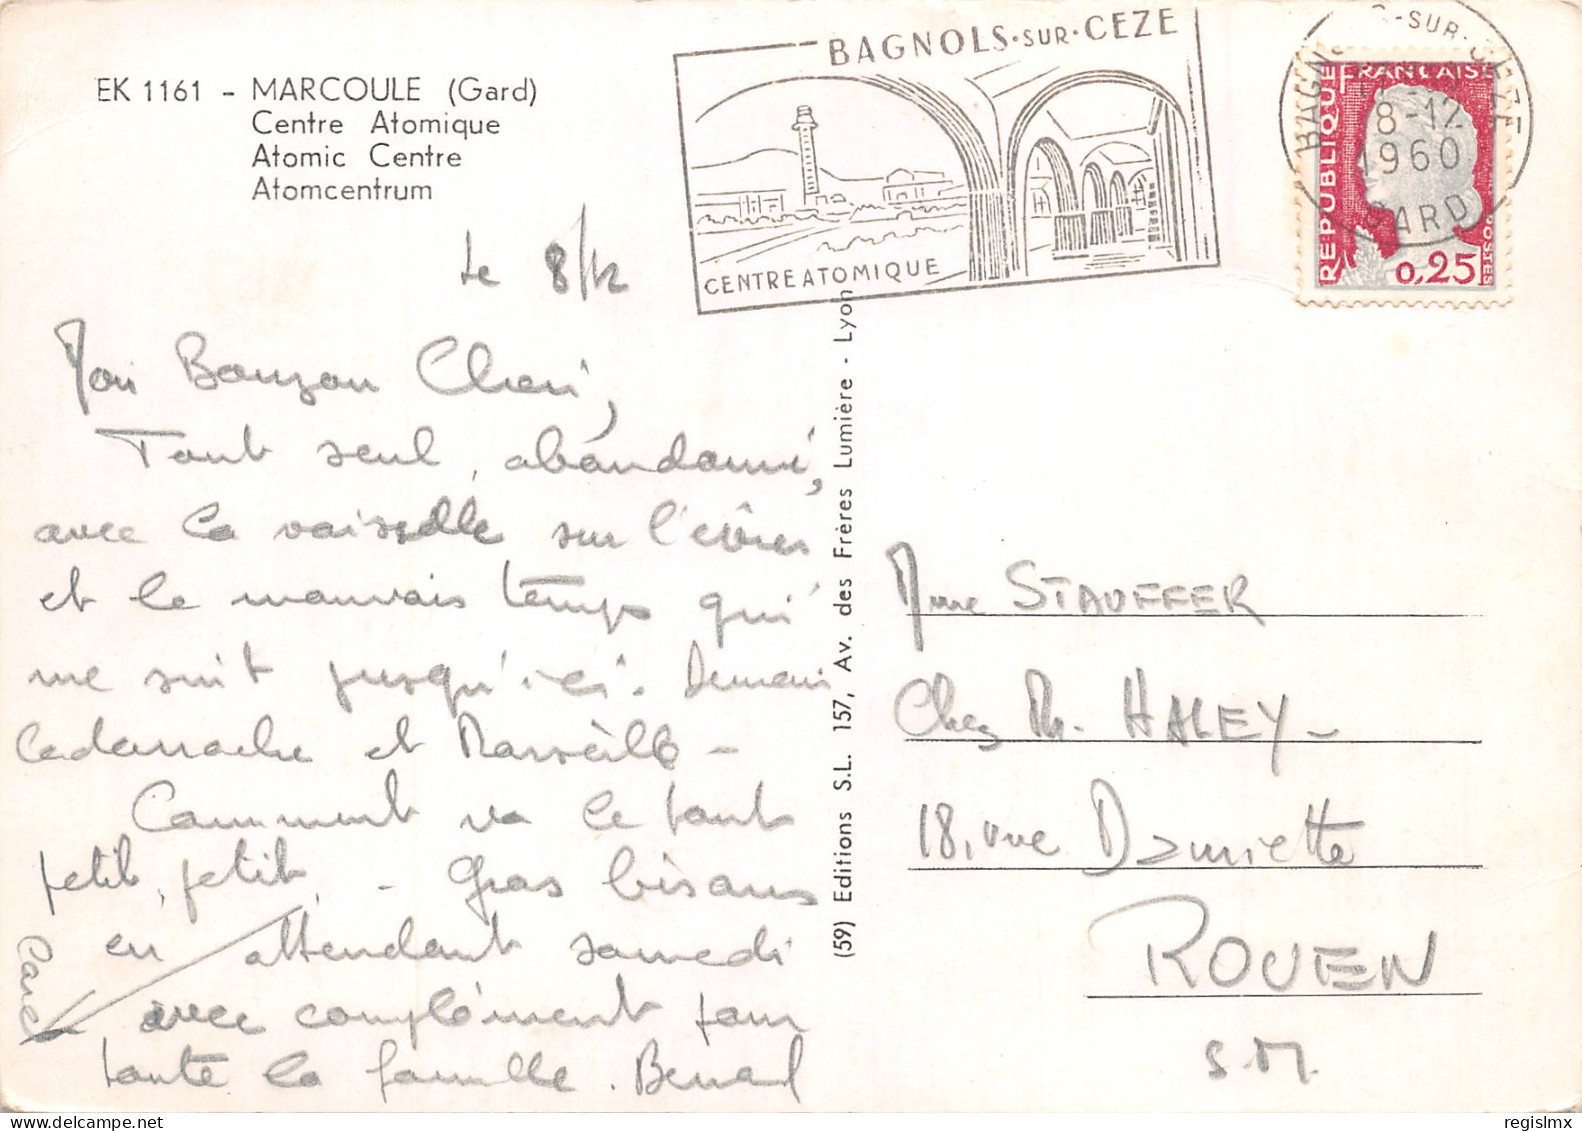 EK 1161 - MARCOULE (Gard)
Centre Atomique
Atomic Centre
Atomcentrum
BAGNOLS·SUR·CEZE
CENTRE ATOMIQUE
-SUR-CEZE
8-12
1960
GARD
REPUBLIQUE FRANÇAISE
POSTES
0,25
Le 8/12
Mon Bouzou Cheri,
Tout seul, abandonné,
avec la vaisselle sur l'évier
et le mauvais temps qui
me suit jusqu'ici. Demain
Cadarrache et Marseille -
Comment va le tout
petit, petit, - Gros bisous
en attendant samedi
avec complément pour
toute la famille. Bernard
(59) Editions S.L. 157, Av. des Frères Lumière - Lyon
Mme STAUFFER
Chez Mr. HALEY -
18, rue Damiette
ROUEN
S.M.